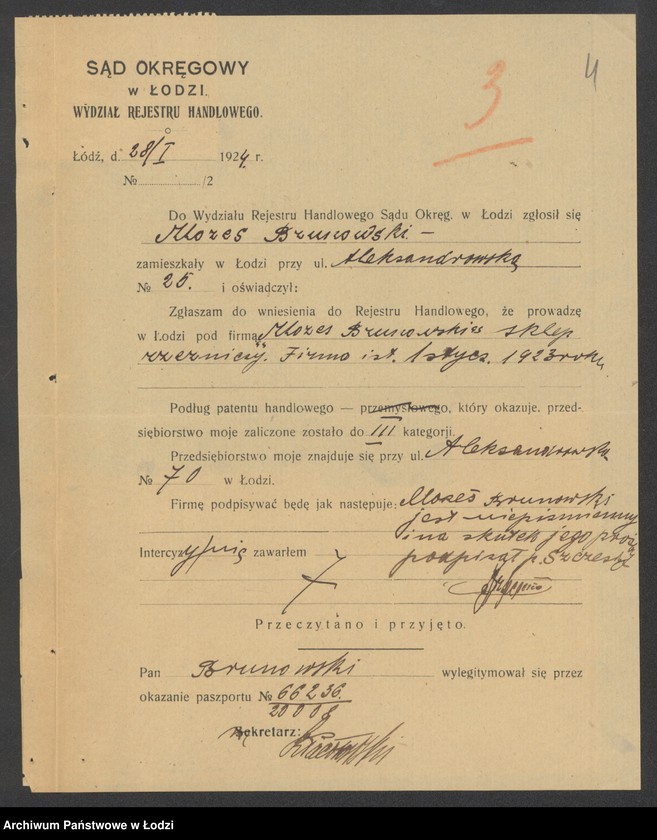 3
4
SĄD OKRĘGOWY
w ŁODZI.
WYDZIAŁ REJESTRU HANDLOWEGO.
Łódź, d. 28/I 1924 r.
№ /2
Do Wydziału Rejestru Handlowego Sądu Okręg. w Łodzi zgłosił się
Mozes Brunowski. —
zamieszkały w Łodzi przy ul. Aleksandrowską
№ 25. i oświadczył:
Zgłaszam do wniesienia do Rejestru Handlowego, że prowadzę
w Łodzi pod firmą „Mozes Brunowski" sklep
rzeźniczy. Firma ist. 1 stycz. 1923 roku
Podług patentu handlowego — przemysłowego, który okazuje, przed-
siębiorstwo moje zaliczone zostało do III kategorji.
Przedsiębiorstwo moje znajduje się przy ul. Aleksandrowska
№ 70 w Łodzi.
Firmę podpisywać będę jak następuje: Mozes Brunowski
jest niepiśmienny
i na skutek jego prośby
Intercyzy nie zawarłem podpisał p. Szczesny
Przeczytano i przyjęto.
Pan Brunowski wylegitymował się przez
okazanie paszportu № 66236.
20008
Sekretarz: